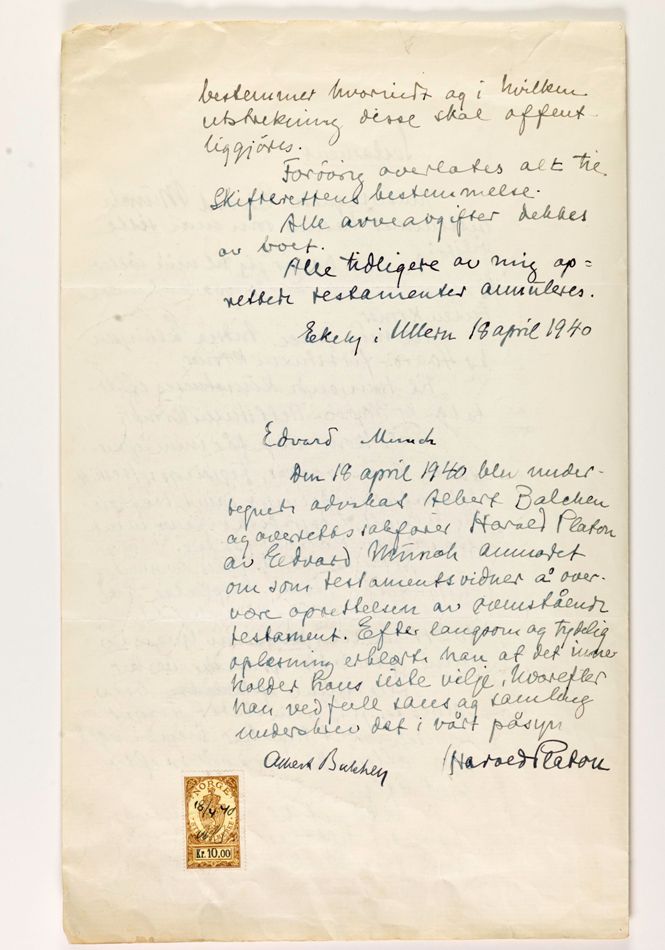 bestemmer hvorvidt og i hvilken
utstrekning disse skal offent-
liggjöres.
Forövrig overlates alt til
Skifterettens bestemmelse.
Alle arveavgifter dekkes
av boet.
Alle tidligere av mig op=
rettede testamenter annuleres.
Ekely i Ullern 18 april 1940
Edvard Munch
Den 18 april 1940 blev under-
tegnede advokat Albert Balchen
og overrettssakförer Harald Platon
av Edvard Münch anmodet
om som testamentsvidner å over-
være oprettelsen av foranstående
testament. Efter langsom og tydelig
oplesning erklærte han at det inne-
holder hans siste vilje, hvorefter
han ved full sans og samling
underskrev det i vårt påsyn
Albert Balchen
Harald Platon
NORGE
18/4 40
Kr. 10,00